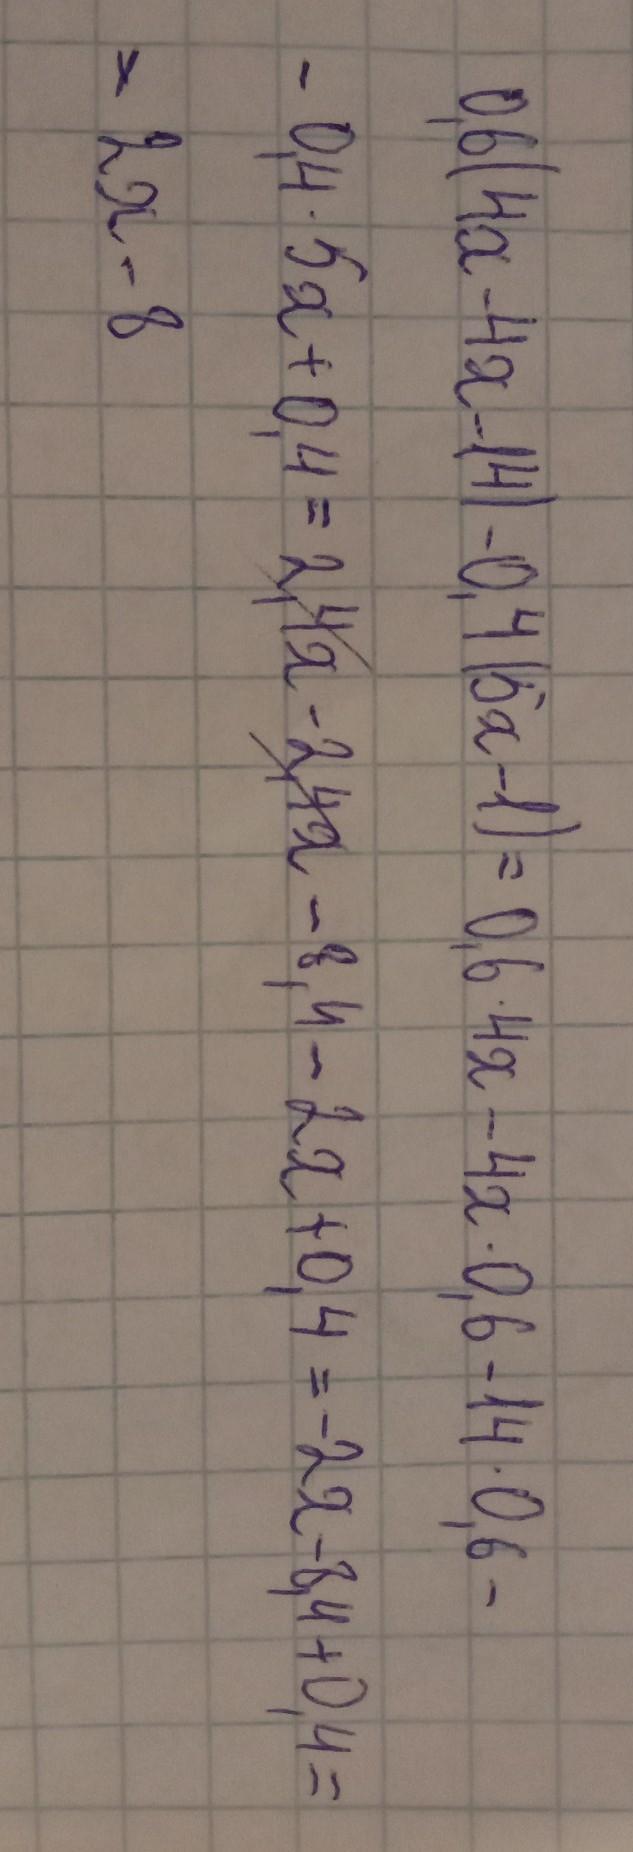 0,6(4x-4x-14)-0,4(5x-1)=0,6·4x-4x·0,6-14·0,6-
-0,4·5x+0,4=2,4x-2,4x-8,4-2x+0,4=-2x-8,4+0,4=
=2x-8